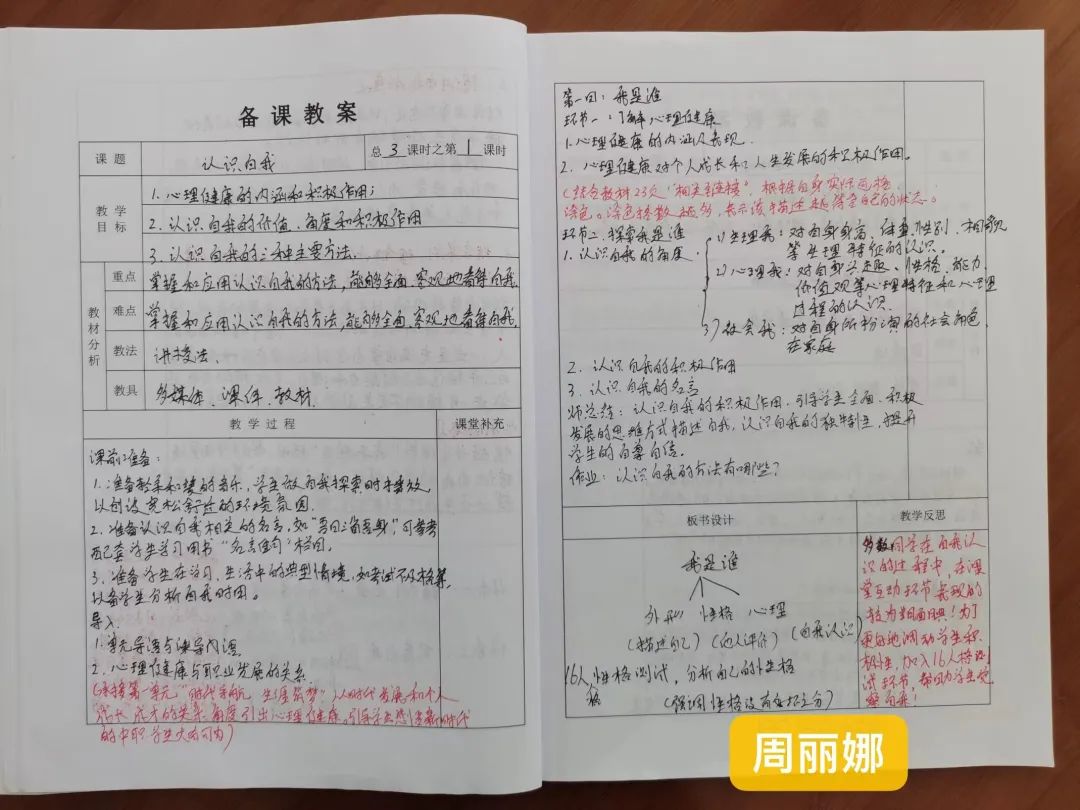 备课教案
课题 认识自我 总3课时之第1课时
教学目标
1.心理健康的内涵和积极作用;
2.认识自我的价值、角度和积极作用
3.认识自我的三种主要方法.
教材分析
重点 掌握和应用认识自我的方法,能够全面、客观地看待自我.
难点 掌握和应用认识自我的方法,能够全面、客观地看待自我.
教法 讲授法.
教具 多媒体、课件、教材.
教学过程 课堂补充
课前准备:
1.准备轻柔和缓的音乐,学生做自我探索时播放,
以创设宽松舒适的环境氛围.
2.准备认识自我相关的名言,如"吾日三省吾身",可参考
配套学生学习用书"名言佳句"栏目。
3.准备学生在学习、生活中的典型情境,如考试不及格等,
以备学生分析自我时用。
导入
1.单元导语与课导内涵
2.心理健康与职业发展的关系
(承接第一单元"时代导航 生涯筑梦",从时代发展和个人
成长、成才的关系角度引出心理健康,引导学生感悟新时代
的中职学生大有可为)
第一目:我是谁
环节一:了解心理健康
1.心理健康的内涵及表现.
2.心理健康对个人成长和人生发展的积极作用。
(结合教材23页"相关链接",根据自身实际画格
涂色。涂色格数越多,表示该描述越符合自己的状态。
环节二、探索我是谁
1.认识自我的角度
1)生理我:对自身身高、体重、性别、相貌
等生理特征的认识。
2)心理我:对自身兴趣、性格、能力、
价值观等心理特征和心理
过程的认识.
3)社会我:对自身所扮演的社会角色,
在家庭
2.认识自我的积极作用
3.认识自我的名言
师总结:认识自我的积极作用,引导学生全面、积极
发展的思维方式描述自我,认识自我的独特性,提升
学生的自尊自信。
作业:认识自我的方法有哪些?
板书设计 教学反思
我是谁
外形 性格 心理
(描述自己)(他人评价)(自我认识)
16人格性格测试,分析自己的性格
(强调性格没有好坏之分)
多数同学在自我认
识的过程中,在课
堂互动环节表现的
较为腼腆!为了
更好地调动学生积
极性,加入16人格测
试环节,帮助学生觉
察自我!
周丽娜